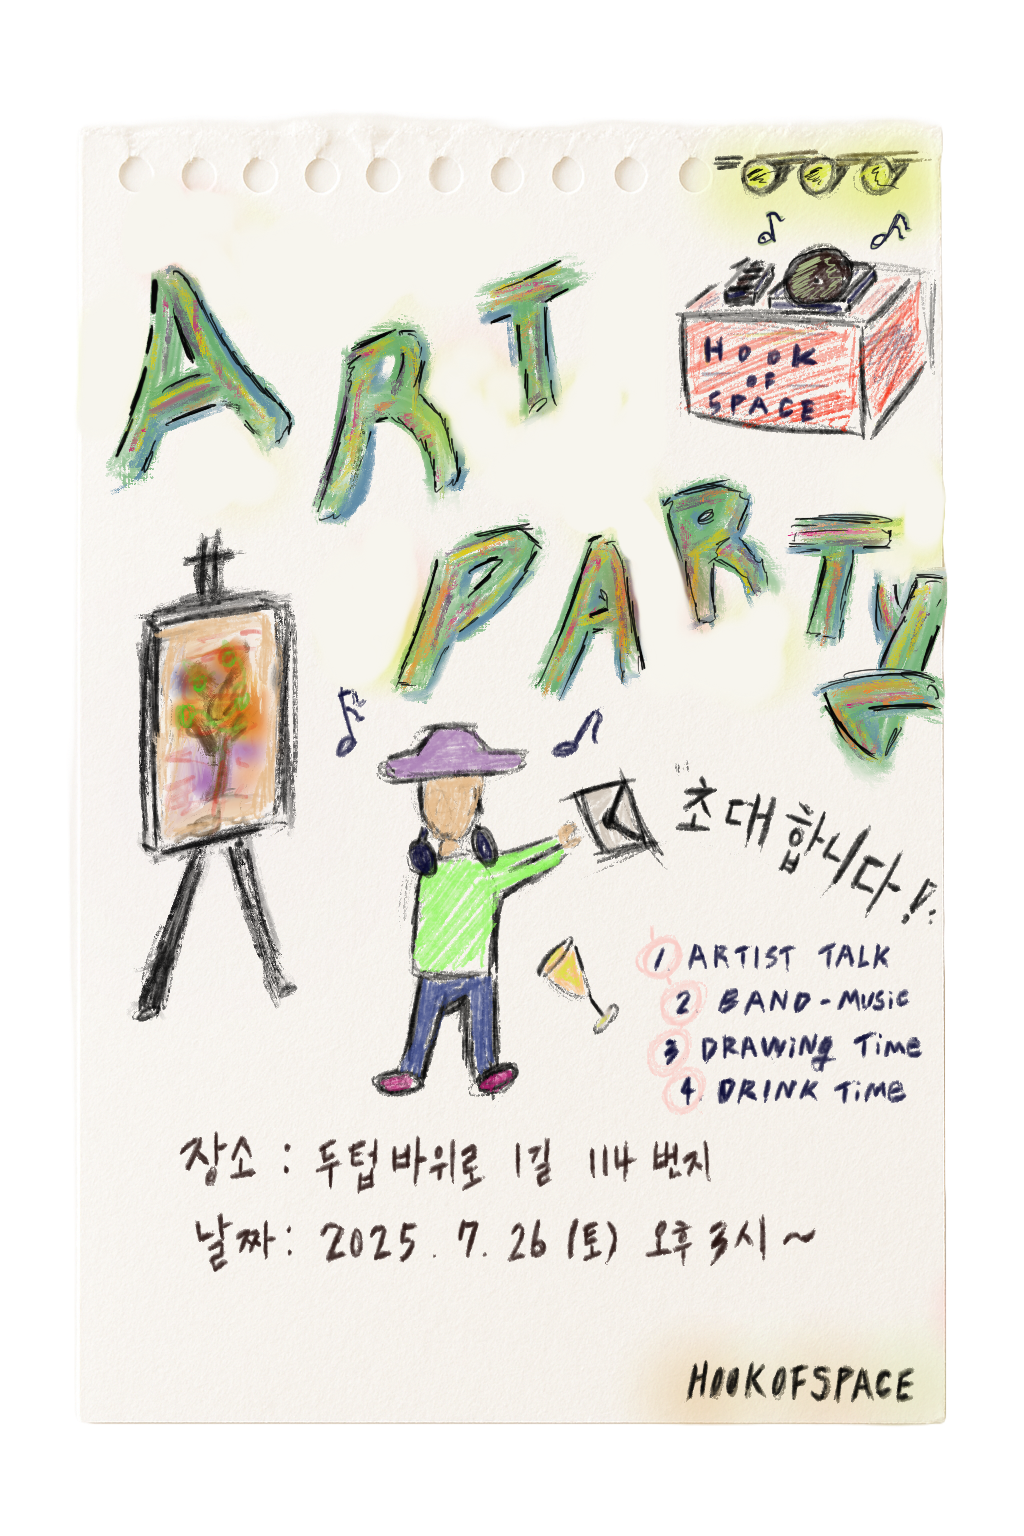 ART
PARTY
HOOK
OF
SPACE
초대합니다!
1 ARTIST TALK
2. BAND-MUSiC
3 DRAWiNg TiME
4. DRINK TiME
장소 : 두텁바위로 1길 114 번지
날짜: 2025. 7. 26 (토) 오후 3시 ~
HOOKOFSPACE